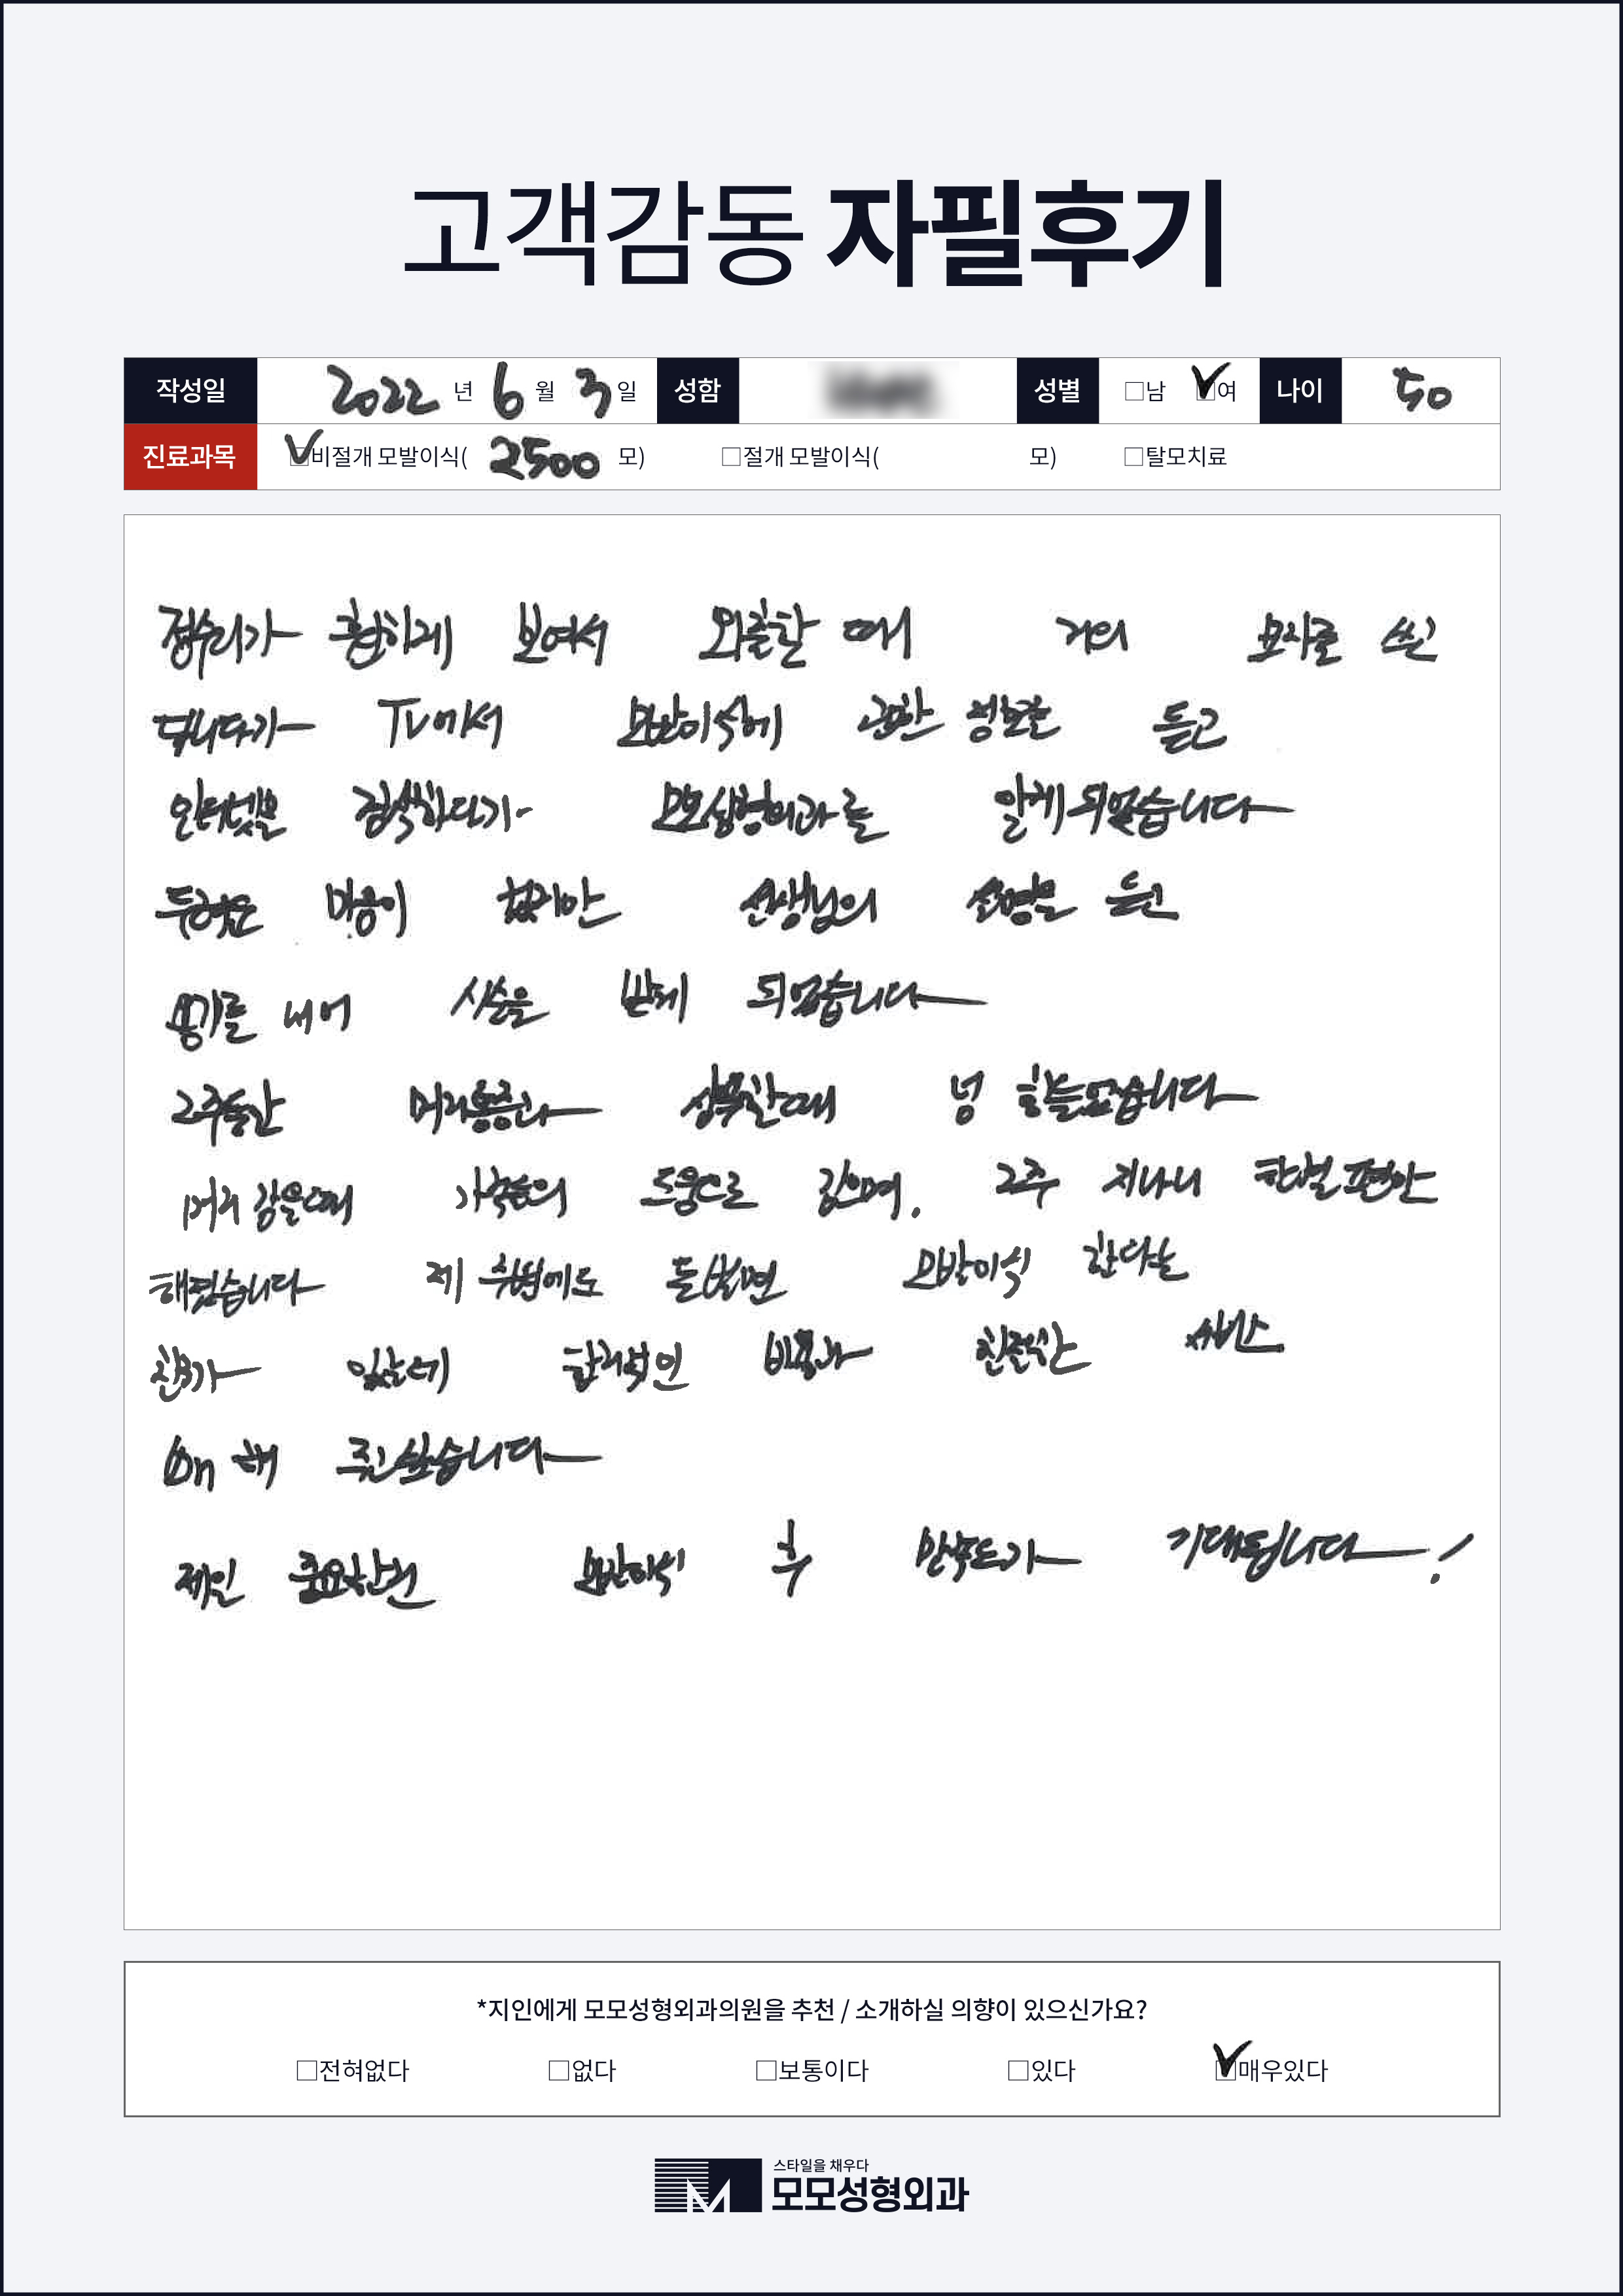 고객감동 자필후기
작성일 2022 년 6 월 3 일 성함 성별 □남 ☑여 나이 50
진료과목 ☑비절개 모발이식( 2500 모) □절개 모발이식( 모) □탈모치료
정수리가 휑하게 보여서 외출할 때 거의 모자를 쓰고
다니다가 TV에서 모발이식에 관한 정보를 듣고
인터넷을 검색하다가 모모성형외과를 알게되었습니다
두려운 마음이 선생님의 설명을 듣고
용기를 내어 시술을 받게 되었습니다
2주동안 머리통증과 샴푸할때 넘 힘들었습니다
머리 감을때 가족들의 도움으로 감으며, 2주 지나니 한결 편안
해졌습니다 제 주변에도 둘러보면 모발이식 한다는
친구가 있는데 합리적인 비용과 친절한 서비스
해 주고싶습니다
제일 중요한건 모발이식 후 만족도가 기대됩니다!
*지인에게 모모성형외과의원을 추천 / 소개하실 의향이 있으신가요?
□전혀없다 □없다 □보통이다 □있다 ☑매우있다
스타일을 채우다
모모성형외과